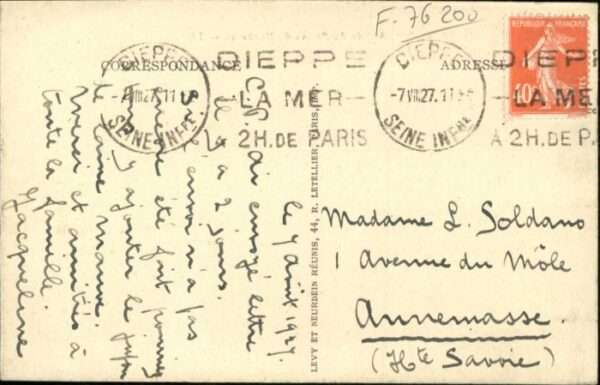 F. 76 200
CORRESPONDANCE
ADRESSE
DIEPPE
7 VIII 27. 11
SEINE INFRE
DIEPPE
LA MER
A 2H. DE PARIS
DIEPPE
-7 VIII. 27. 11
SEINE INFRE
DIEPPE
LA ME
A 2H. DE P
REPUBLIQUE FRANÇAISE
POSTES
40
LEVY ET NEURDEIN RÉUNIS, 44, R. LETELLIER, PARIS
le 7 Août 1927.
ai envoyé lettre
il y a 2 jours.
envoi n'a pas
été fait pourrez
y ajouter le jupon
de laine mauve.
Merci et amitiés à
toute la famille
Jacqueline
Madame L. Soldano
1 Avenue du Môle
Annemasse.
(Hte Savoie)